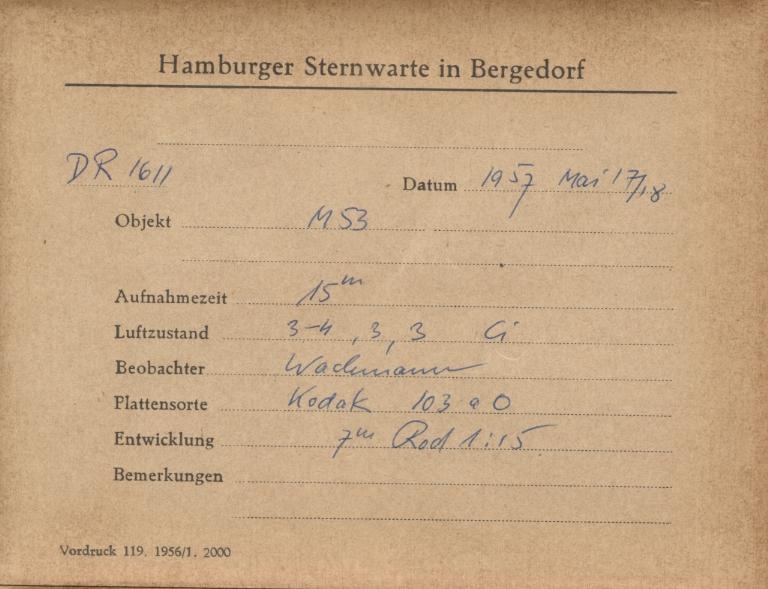 Hamburger Sternwarte in Bergedorf
DR 1611
Datum 1957 Mai 17/18
Objekt M 53
Aufnahmezeit 15m
Luftzustand 3-4, 3, 3 Ci
Beobachter Wachmann
Plattensorte Kodak 103 a O
Entwicklung 7m Rod 1:15
Bemerkungen
Vordruck 119. 1956/1. 2000